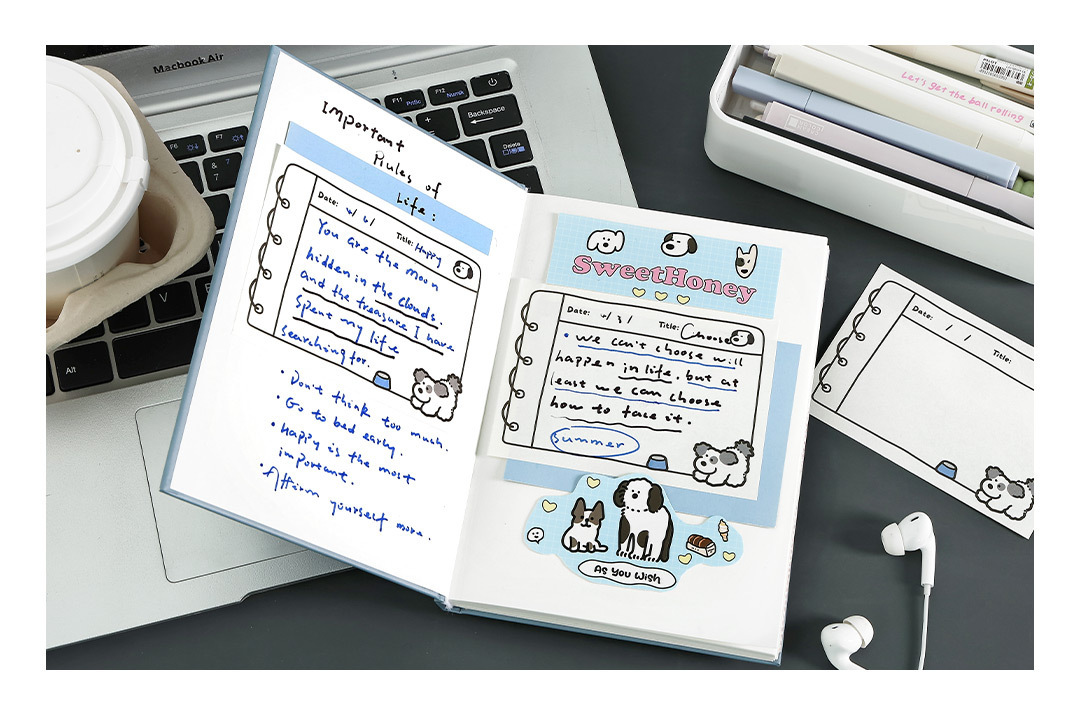 Macbook Air
F6
F7
F11
Prtlc
F12
Numlk
&
7
+
Backspace
Delete
V
Alt
Let's get the ball rolling
Important
Rules of
Life:
Date: 4/6/
Title: Happy
You are the moon
hidden in the clouds.
and the treasure I have
spent my life
searching for.
• Don't think too much.
• Go to bed early.
• Happy is the most
important.
• Affirm yourself more.
SweetHoney
Date: 4/3/
Title: Choose
• we can't choose will
happen in life, but at
least we can choose
how to face it.
Summer
As You Wish
Date: / /
Title: